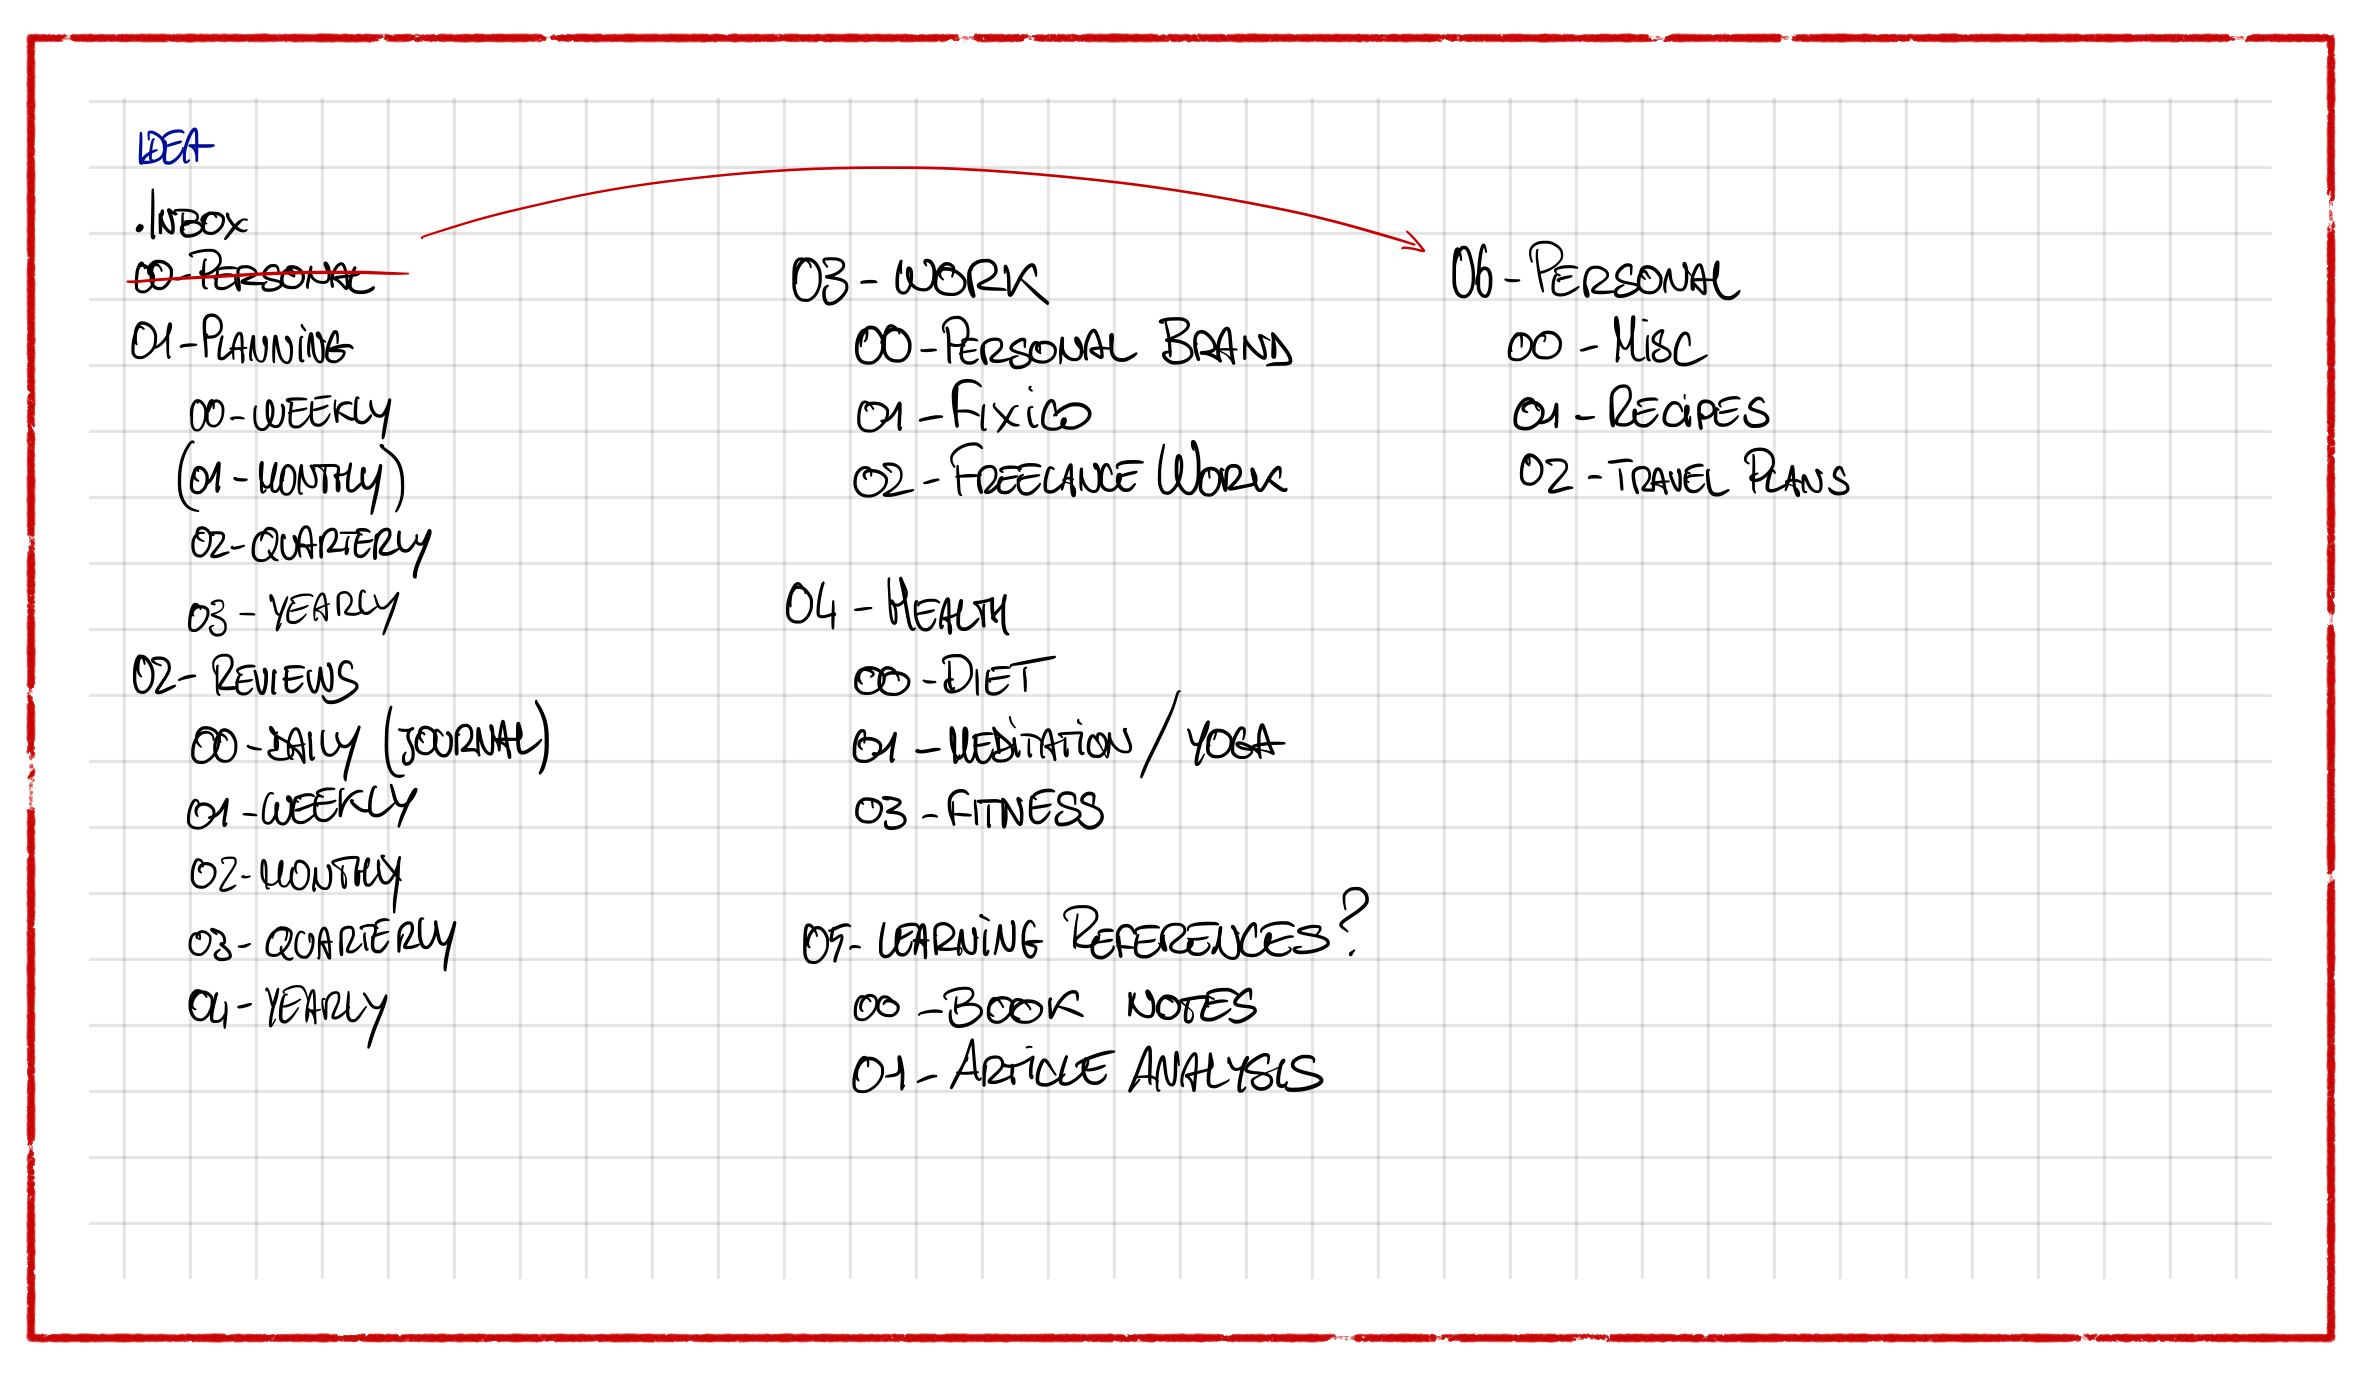 IDEA
.INBOX
00-PERSONAL
01-PLANNiNG
00-WEEKLY
(01-MONTHLY)
02-QUARTERLY
03-YEARLY
02-REVIEWS
00-DAILY (JOURNAL)
01-WEEKLY
02-MONTHLY
03-QUARTERLY
04-YEARLY
03-WORK
00-PERSONAL BRAND
01-FiXiCO
02-FREELANCE WORK
04-HEALTH
00-DIET
01-MEDiTATiON / YOGA
03-FITNESS
05-LEARNiNG REFERENCES?
00-BOOK NOTES
01-ARTiCLE ANALYSIS
06-PERSONAL
00-MiSC
01-RECiPES
02-TRAVEL PLANS